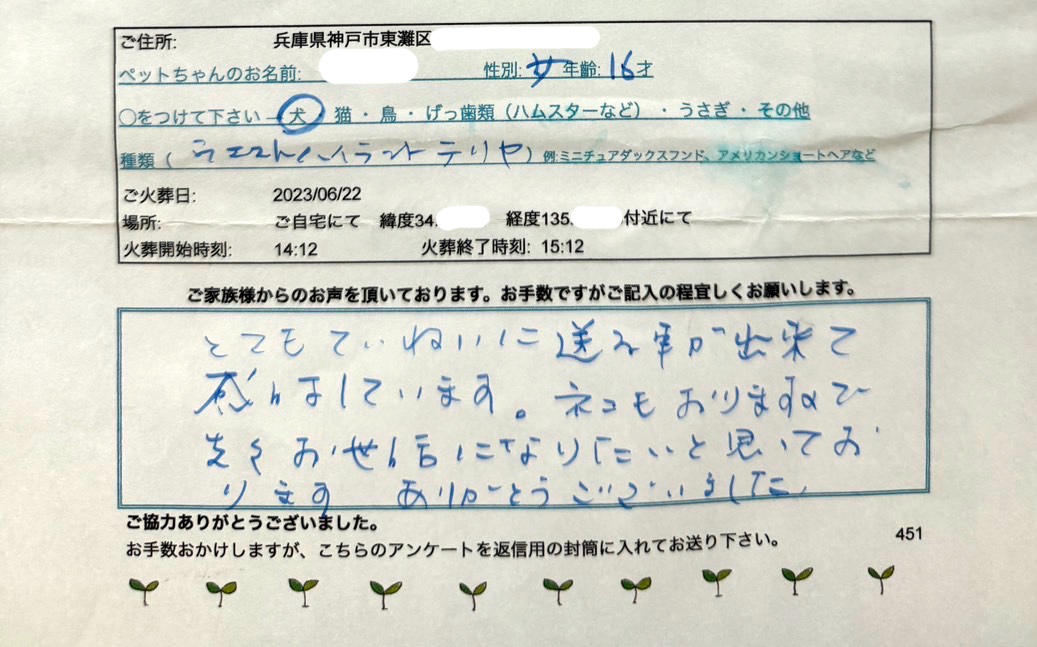 ご住所: 兵庫県神戸市東灘区
ペットちゃんのお名前: 性別: 女 年齢: 16才
○をつけて下さい 犬・猫・鳥・げっ歯類（ハムスターなど）・うさぎ・その他
種類（ ウエストハイランドテリヤ ）例:ミニチュアダックスフンド、アメリカンショートヘアなど
ご火葬日: 2023/06/22
場所: ご自宅にて 緯度34. 経度135. 付近にて
火葬開始時刻: 14:12 火葬終了時刻: 15:12
ご家族様からのお声を頂いております。お手数ですがご記入の程宜しくお願いします。
とてもていねいに送る事が出来て
感しゃしています。ネコもおりますので
先々お世話になりたいと思いてお
ります ありがとうございました
ご協力ありがとうございました。
お手数おかけしますが、こちらのアンケートを返信用の封筒に入れてお送り下さい。
451